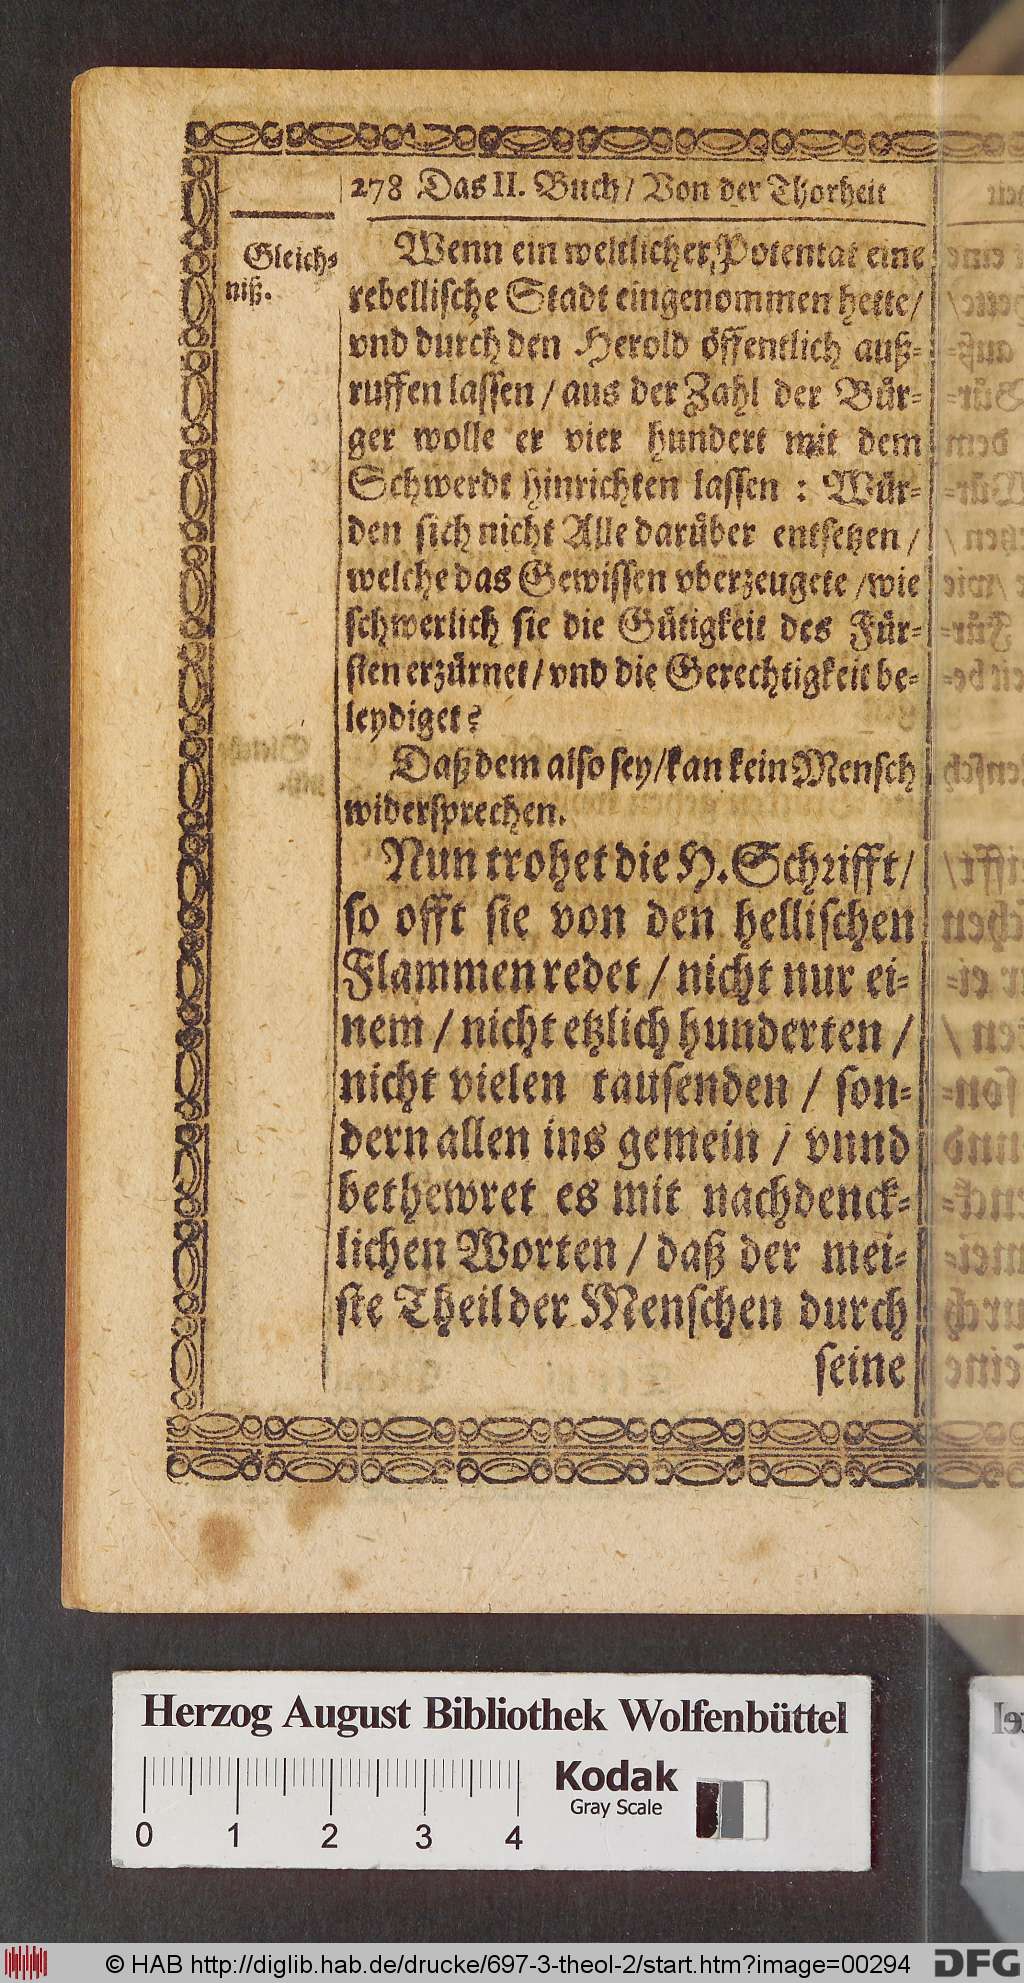 278 Das II. Buch / Von der Thorheit
Gleich-
niß.
Wenn ein weltlicher Potentat eine
rebellische Stadt eingenommen hette /
vnd durch den Herold öffentlich auß-
ruffen lassen / aus der Zahl der Bür-
ger wolle er vier hundert mit dem
Schwerdt hinrichten lassen : Wür-
den sich nicht Alle darüber entsetzen /
welche das Gewissen vberzeugete / wie
schwerlich sie die Gütigkeit des Für-
sten erzürnet / vnd die Gerechtigkeit be-
leydiget?
Daß dem also sey / kan kein Mensch
widersprechen.
Nun trohet die H. Schrifft /
so offt sie von den hellischen
Flammen redet / nicht nur ei-
nem / nicht etzlich hunderten /
nicht vielen tausenden / son-
dern allen ins gemein / vnnd
bethewret es mit nachdenck-
lichen Worten / daß der mei-
ste Theil der Menschen durch
seine
Herzog August Bibliothek Wolfenbüttel
Kodak
Gray Scale
0 1 2 3 4
© HAB http://diglib.hab.de/drucke/697-3-theol-2/start.htm?image=00294
DFG